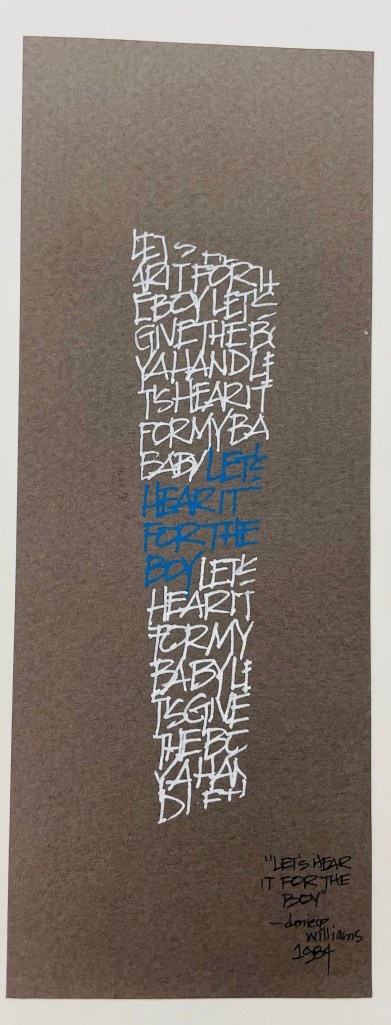 LET'S HE
ARIT FOR TH
E BOY LET'S
GIVE THE BO
Y A HAND LE
T'S HEAR IT
FOR MY BA
BABY LET'S
HEAR IT
FOR THE
BOY LET'S
HEAR IT
FOR MY
BABY LE
T'S GIVE
THE BO
Y A HAN
D
"LET'S HEAR
IT FOR THE
BOY"
- deniece
williams
1984